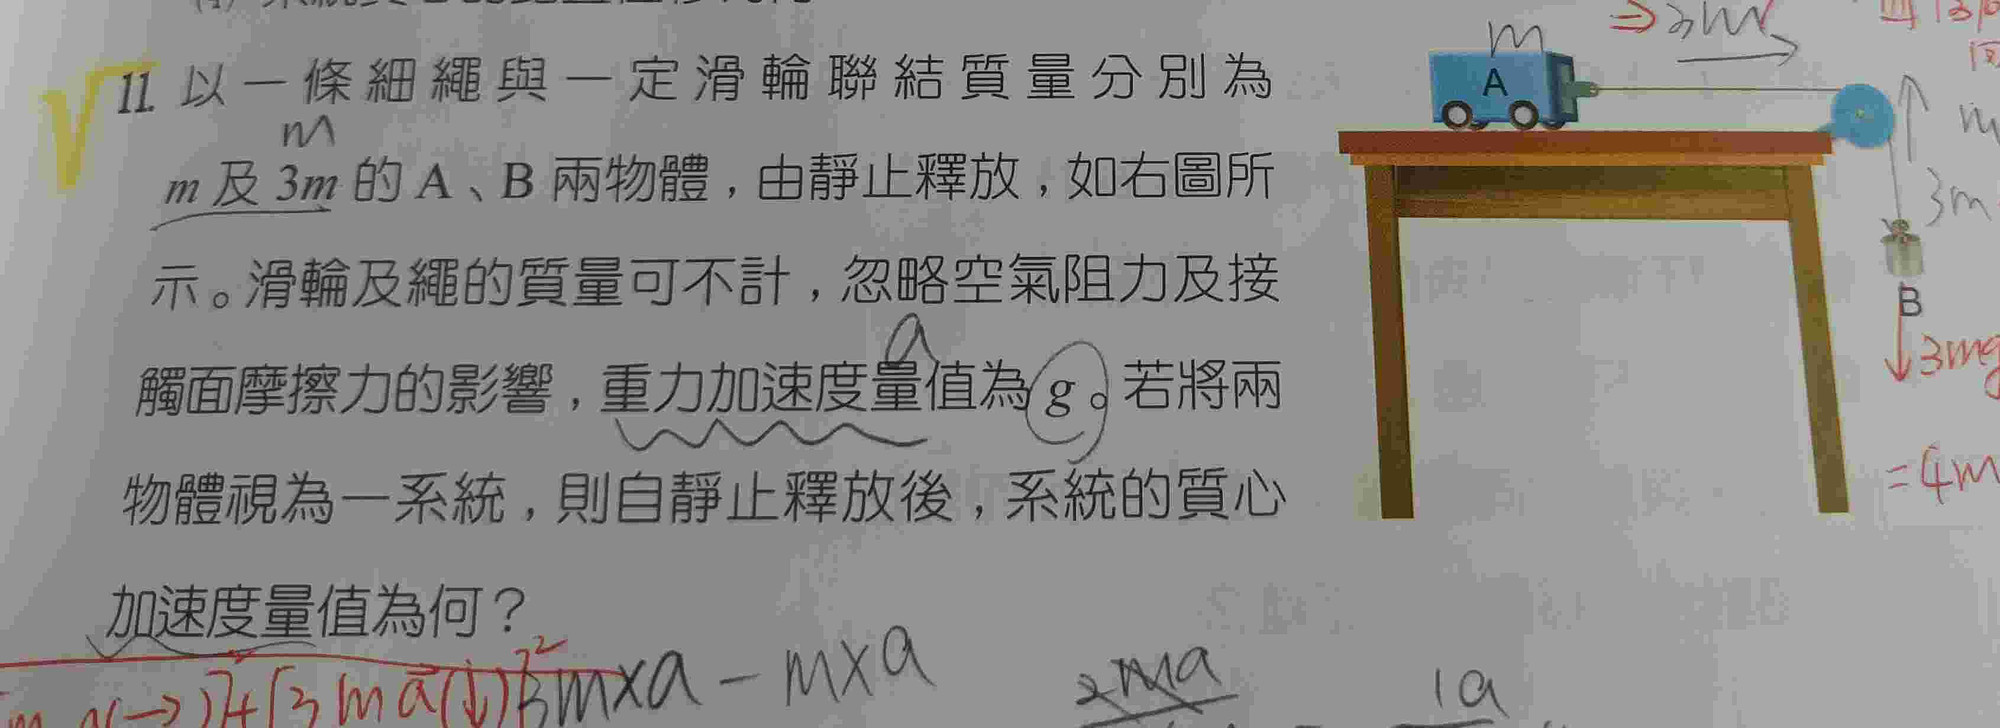 11. 以一條細繩與一定滑輪聯結質量分別為
m
m 及 3m 的 A、B 兩物體，由靜止釋放，如右圖所
示。滑輪及繩的質量可不計，忽略空氣阻力及接
a
觸面摩擦力的影響，重力加速度量值為 g。若將兩
物體視為一系統，則自靜止釋放後，系統的質心
加速度量值為何？
3m×a − m×a
2ma
1a
m
A
3m
B
3mg
=4m